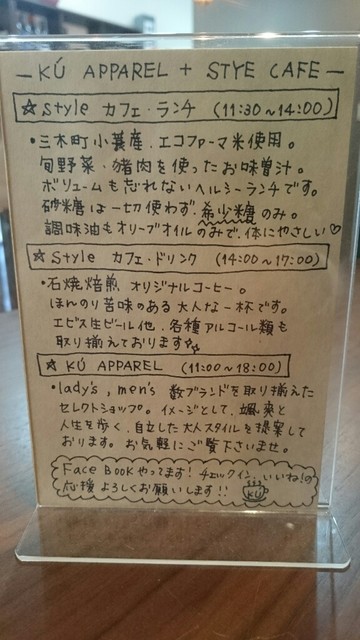 — KÚ APPAREL + STYE CAFE —
☆ Style カフェ・ランチ (11:30~14:00)
・三木町小蓑産、エコファーマ米使用。
旬野菜・猪肉を使ったお味噌汁。
ボリュームも忘れないヘルシーランチです。
砂糖は一切使わず、希少糖のみ。
調味油もオリーブオイルのみで、体にやさしい♡
☆ Style カフェ・ドリンク (14:00~17:00)
・石焼焙煎 オリジナルコーヒー。
ほんのり苦味のある大人な一杯です。
エビス生ビール他、各種アルコール類も
取り揃えております☆
☆ KÚ APPAREL (11:00~18:00)
・lady's, men's 数ブランドを取り揃えた
セレクトショップ。イメージとして、颯爽と
人生を歩く、自立した大人スタイルを提案して
おります。お気軽にご覧下さいませ。
Face BOOKやってます!チェックイン、いいね!の
応援よろしくお願いします!!
KÚ